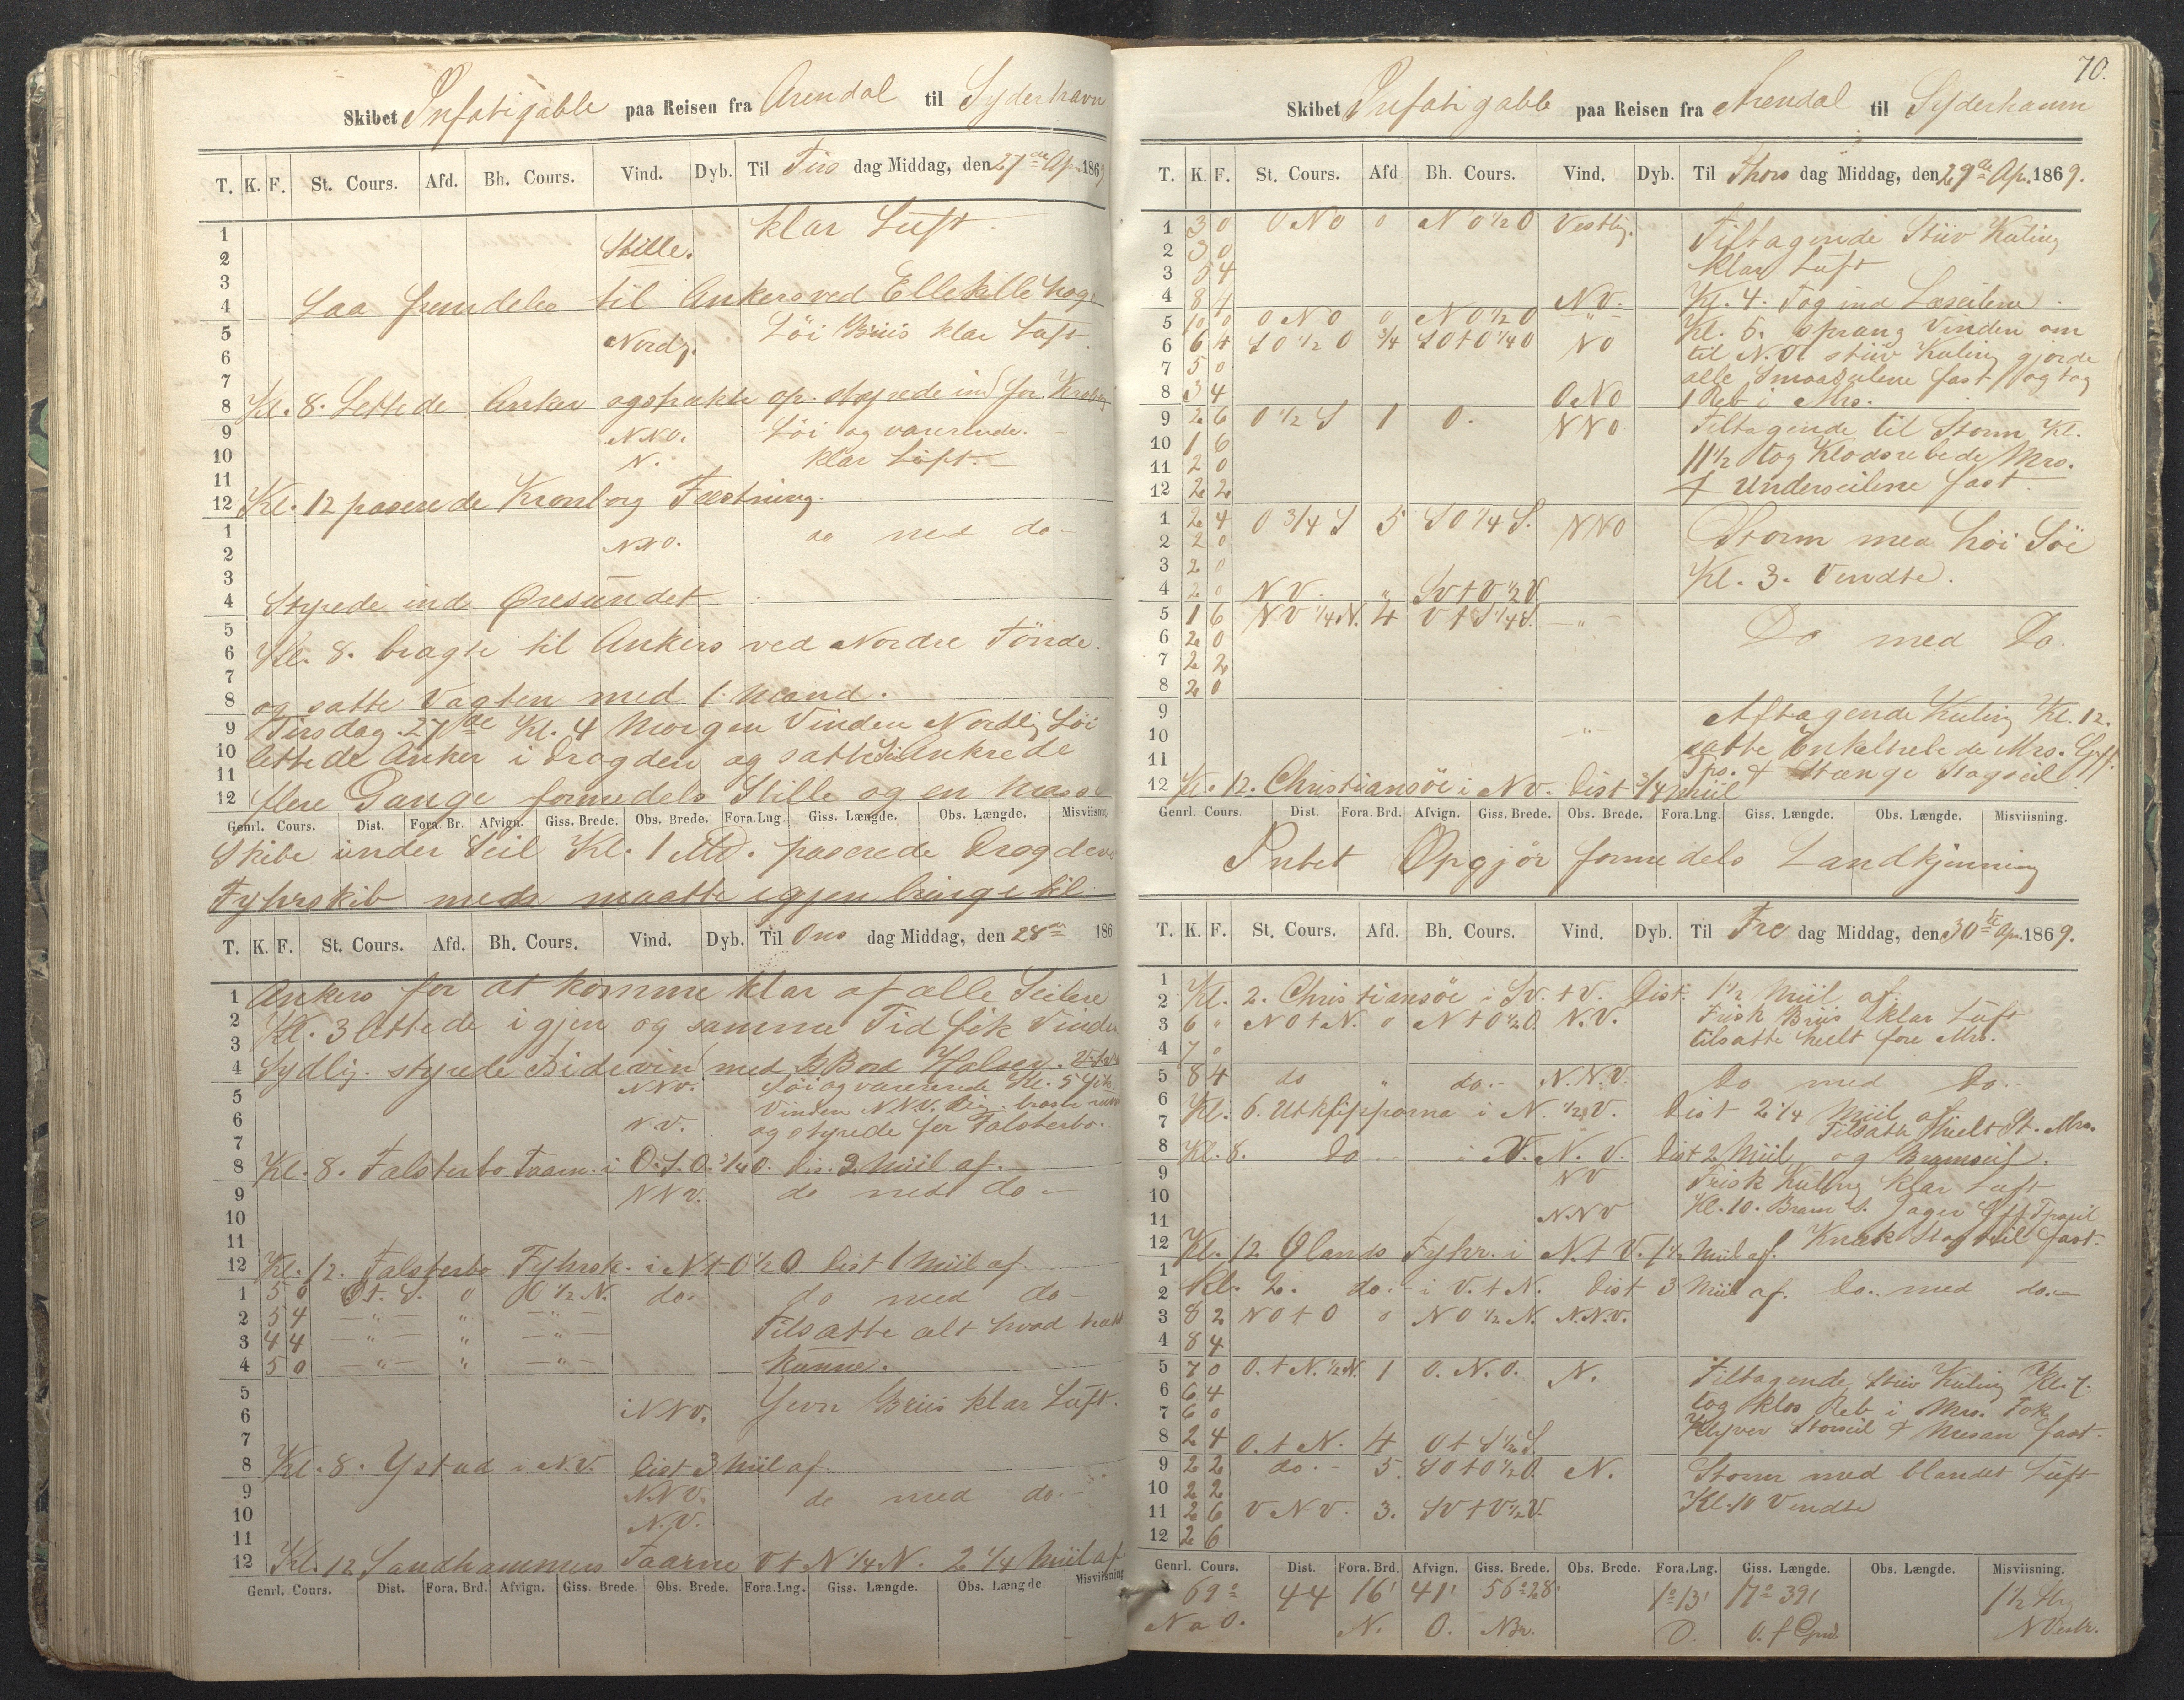 Skibet Infatigable paa Reisen fra Arendal til Syderhavn
T. K. F. St. Cours. Afd. Bh. Cours. Vind. Dyb. Til Tirs dag Middag, den 27de Ap. 1869
1 klar Luft
2 Stille.
3
4 Laa fremdeles til Ankers ved Ellekille hage
5 Nordl. Löi Briis klar Luft
6
7
8 Kl. 8. Lettede Anker og strakte op. styrede ind for Kronborg
9 NNO. Löi og varierende.
10 N. klar Luft.
11
12 Kl. 12 paserede Kronborg Fæstning.
1 NNO. do med do
2
3
4 Styrede ind Øresundet
5
6 Kl. 8. bragte til Ankers ved Nordre Tönde.
7
8 og satte Vagten med 1 Mand.
9 Tirsdag 27de Kl. 4 Morgen Vinden Nordlig Löi
10 lettede Anker i Drogden og satte til Ankrede
11
12 flere Gange formedels Stille og en Masse
Genrl. Cours. Dist. Fora. Br. Afvign. Giss. Brede. Obs. Brede. Fora. Lng. Giss. Længde. Obs. Længde. Misviisning.
Skibe under Seil Kl. 1 Md. paserede Drogdens
Fyhrskib men maatte igjen bringe til
T. K. F. St. Cours. Afd. Bh. Cours. Vind. Dyb. Til Ons dag Middag, den 28de 186
1 Ankers for at komme klar af alle Seilere
2 Kl. 3 lettede igjen og samme Tid fik Vinden
3
4 Sydlig. styrede Bidevin med BBord Halser.
5 NNV. Löi og varierende Kl. 5 fik
Vinden NNV. lig. braste
6 NV. og styrede for Falsterbo.
7
8 Kl. 8. Falsterbo Taarn i O.S.O. 3/4 O. Dis. 2 Miil af.
9 NNV. do med do
10
11
12 Kl. 12. Falsterbo Fyhrsk. i N t O 1/2 O Dist 1 Miil af.
1 5 0 O t. S. 0 O 1/2 N. do do med do
2 5 4 " " " Tilsatte alt hvad trække
3 4 4 " " "
4 5 0 " " " kunne.
5
6 NNV. Jevn Briis klar Luft.
7
8 Kl. 8. Ystad i N.V. Dist 3 Miil af.
9 NNV. do med do
10 N.V.
11
12 Kl. 12 Sandhammers Taarne O t N 1/4 N. 2 1/4 Miil af
Genrl. Cours. Dist. Fora. Brd. Afvign. Giss. Brede. Obs. Brede. Fora. Lng. Giss. Længde. Obs. Længde Misviisning
70.
Skibet Infatigable paa Reisen fra Arendal til Syderhamn
T. K. F. St. Cours. Afd Bh. Cours. Vind. Dyb. Til Thors dag Middag, den 29de Ap. 1869.
1 3 0 O N O 0 N O 1/2 O Vestlig. Tiltagende Stiiv Kuling
2 3 0
3 5 4 klar Luft
4 8 4 N V. Kl. 4. Tog ind Læseilene.
5 10 0 O N O 0 N O 1/2 O " Kl. 5. sprang Vinden om
6 6 4 S O 1/2 O 3/4 S O t O 1/4 O N O til N.O. stiiv Kuling gjorde
7 5 0 alle Smaaseilene fast og tog
8 3 4 O N O 1 Reb i Mrs.
9 2 6 O 1/2 S 1 O. N N O Tiltagende til Storm Kl.
10 1 6
11 2 0 11 1/2 tog Klodsrebede Mrs.
12 2 2 & Underseilene fast.
1 2 4 O 3/4 S 5 S O 1/4 S. N N O Storm med höi Söe
2 2 0
3 2 0 Kl. 3. Vendte.
4 2 0 N V. " S V t V 1/2 V.
5 1 6 N V 1/4 N. 4 V t S 1/4 S. "
6 2 0 Do med Do.
7 2 2
8 2 0
9 Aftagende Kuling Kl. 12.
10 " satte Enkeltrebede Mrs.
11 & Stænge Stagseil
12 Kl. 12. Christiansöe i N V. Dist 3/4 Miil
Genrl. Cours. Dist. Fora. Brd. Afvign. Giss. Brede. Obs. Brede. Fora. Lng. Giss. Længde. Obs. Længde. Misviisning.
Intet Opgjör formedels Landkjenning
T. K. F. St. Cours. Afd. Bh. Cours. Vind. Dyb. Til Fre dag Middag, den 30te Ap. 1869.
1
2 Kl. 2. Christiansöe i S V. t V. Dist. 1 1/2 Miil af.
3 6 " N O t N. 0 N t O 1/2 O. N.V. Frisk Briis klar Luft
4 7 0 tilsatte heelt fore Mrs.
5 8 4 do " do. N.N.V. Do med Do.
6 Kl. 6. Utklipporna i N. 1/2 V. Dist 2 1/4 Miil af
7 Tilsatte heelt St. Mrs.
8 Kl. 8. Do i V. N. V. Dist 2 Miil og Bramseil.
9 N V Frisk Kuling klar Luft
10 Kl. 10. Bram S. Jager
11 N.N V
12 Kl. 12 Ølands Fyhr. i N. t V. 1 1/2 Miil af. Knæk Stagseil fast.
1
2 Kl. 2. do. i V. t N. Dist 3 Miil af. Do. med do.
3 8 2 N O t O 0 N O 1/2 N. N.N.V.
4 8 4
5 7 0 O. t N. 1/2 N. 1 O. N. O. N. Tiltagende Stiiv Kuling Kl. 7.
6 6 4
7 6 0 tog klos Reb i Mrs. Fok
8 2 4 O. t N. 4 O t S 1/2 S. Klyver Storseil & Mesan fast.
9 2 2 do. 5. S O t O 1/2 O. N. Storm med blandet Luft
10 2 2
11 2 6 V N V. 3. S V t V 1/2 V. Kl. 10 Vendte
12 2 6
Genrl. Cours. Dist. Fora. Brd. Afvign. Giss. Brede. Obs. Brede. Fora. Lng. Giss. Længde. Obs. Længde. Misviisning.
69° 44 16' 41' 56° 28' 1° 13' 17° 39' 1 1/2 Str
N a O. N. O. N Br. O. O. f Grnd. N Vestr.